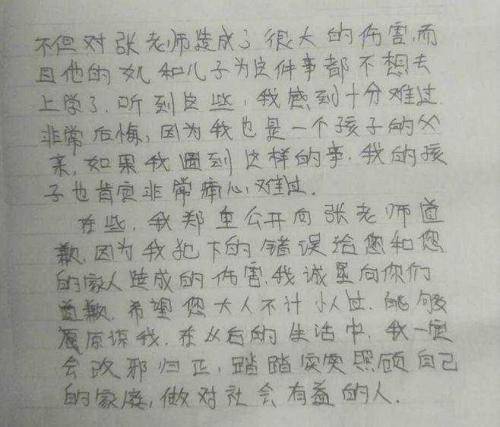 不但对张老师造成了很大的伤害,而
且他的女儿和儿子为这件事都不想去
上学了.听到这些,我感到十分难过
非常后悔,因为我也是一个孩子的父
亲,如果我遇到这样的事.我的孩
子也肯定非常痛心,难过.
在些,我郑重公开向张老师道
歉,因为我犯下的错误给您和您
的家人造成的伤害,我诚恳向你们
道歉.希望您大人不计小人过.能够
原谅我.在以后的生活中,我一定
会改邪归正,踏踏实实照顾自己
的家庭,做对社会有益的人.